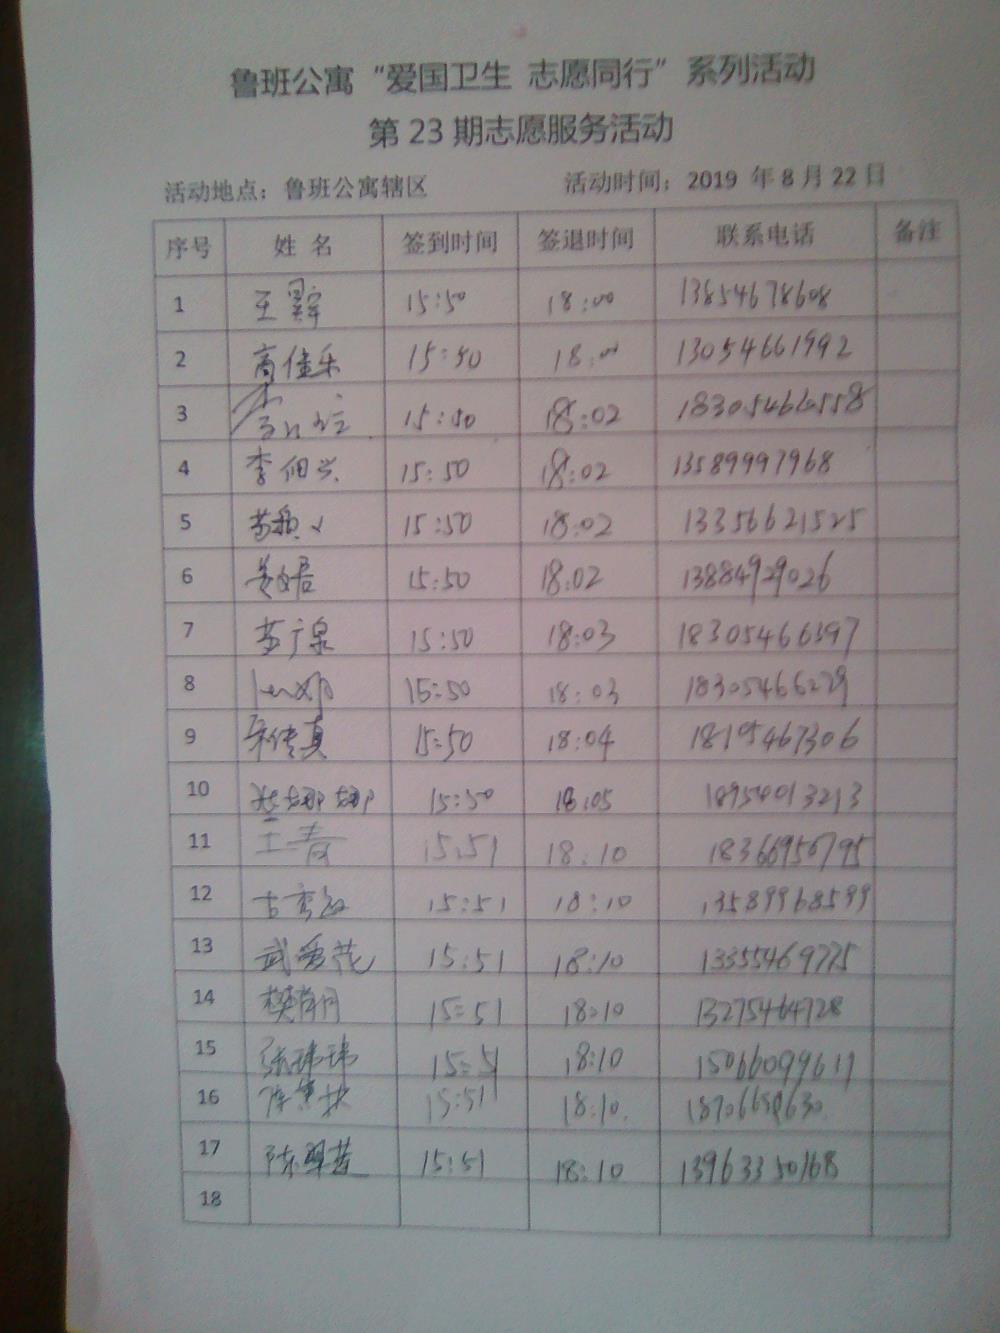 鲁班公寓“爱国卫生 志愿同行”系列活动
第 23 期志愿服务活动
活动地点：鲁班公寓辖区 活动时间：2019 年 8 月 22 日
序号 姓名 签到时间 签退时间 联系电话 备注
1 王 15:50 18:00 13854678608
2 高佳乐 15:50 18:00 13054661992
3 15:50 18:02
4 李 15:50 18:02 13589997968
5 苏 15:50 18:02 13356621525
6 15:50 18:02 13884929026
7 苏广泉 15:50 18:03 18305466397
8 15:50 18:03 18305466229
9 宋传真 15:50 18:04
10 娜娜 15:50 18:05 18954013213
11 王春 15:51 18:10
12 15:51 18:10 13589968599
13 武爱花 15:51 18:10
14 樊 15:51 18:10 13275464728
15 张玮玮 15:51 18:10 15066099611
16 陈 15:51 18:10
17 陈翠莲 15:51 18:10 13963350168
18